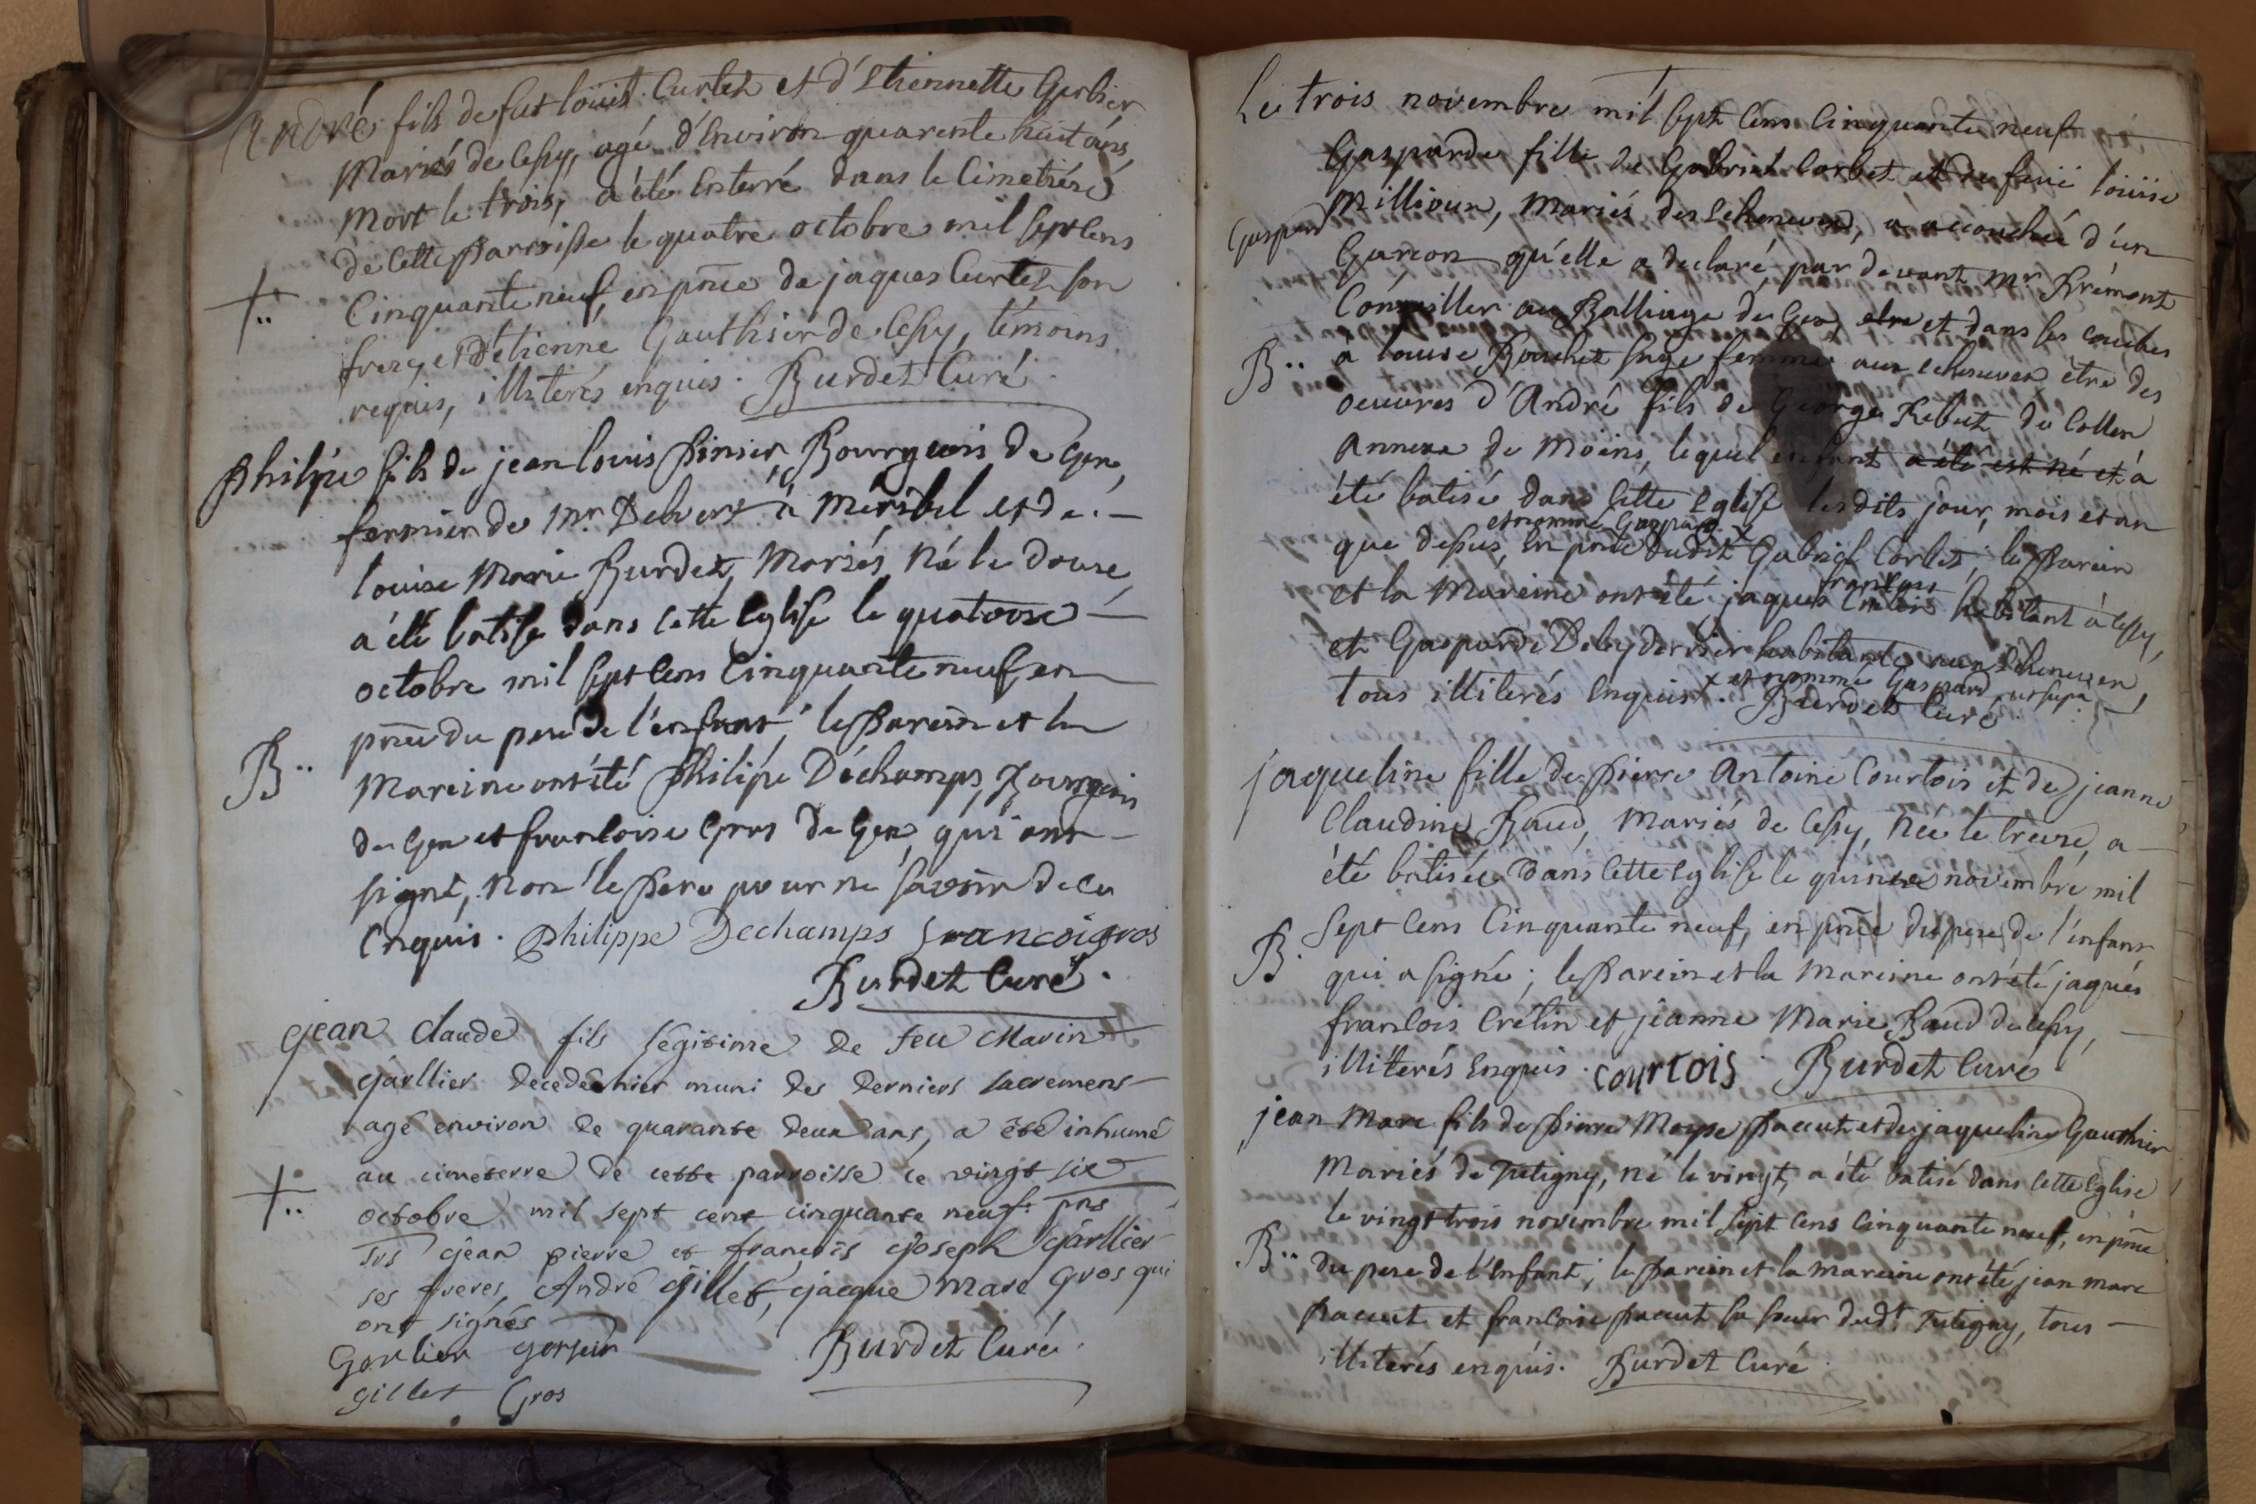 André fils de fut loüis Curtet et d'Etiennette Gerlier
Mariés de Cessy, agé d'Environ quarente huit ans,
Mort le trois, a été Enterré dans le Cimetiére
de Cette Parroisse le quatre octobre mil sept Cens
Cinquante neuf, en pnce de jaques Curtet son
frere, et d'Etienne Gauthier de Cessy, témoins
requis, illiterés enquis. Burdet Curé.
Philipe fils de jean louis Pinier, Bourgeois de Gex,
fermier de Mr. Debvers à Meribel et de
louise Marie Burdet, Mariés, Né le douse,
a été batisé dans Cette Eglise le quatorse
octobre mil sept Cens Cinquante neuf, en
pnce du pere de l'enfant; le Parein et la
Mareine ont été Philipe Dechamps, Bourgeois
de Gex et francoise Gros de Gex, qui ont
signé, non le Pere pour ne savoir de ce
Enquis. Philippe Dechamps francoigros
B..
Burdet Curé.
jean claude fils legitime de feu Marin
garllier decedé hier muni des derniers sacremens
agé environ de quarante deux ans, a été inhumé
au cimeterre de cette parroisse ce vingt six
octobre mil sept cent cinquante neuf: pns
jean pierre et françois joseph garllier
ses freres, André gillet, jacque marc gros qui
ont signés
Garlier
gillet Gros
Burdet Curé.
Le trois novembre mil sept Cens Cinquante neuf
Gasparde fille de Gabriel Corbet et de feüe loüise
Millioux, Mariés des Echenevex, a accouchée d'un
Gaspard
Garcon qu'elle a declaré, par devant Mr Frémont
Conseiller au Balliage de Gex, etre et dans les couches
B..
à louise Bouchet sage femme aux echenevex étre des
oeuvres d'André fils de George Rebut de Collex
Annexe de Moëns, lequel enfant a été est né et a
été batisé dans Cette Eglise lesdits jour, mois et an
et nommé Gaspard
que dessus, En pnce dudit Gabriel Corbet; le Parein
et la Mareine ont été jaques francois Crélin habitant à Cessy,
et Gasparde habitante aux Echenevex,
tous illiterés Enquis. x et nommé Gaspard ut supa.
Burdet Curé.
jaqueline fille de Pierre Antoine Courtois et de jeanne
Claudine Baud, Mariés de Cessy, Née le treise, a
été batisée dans Cette Eglise le quinse novembre mil
B.
sept Cens Cinquante neuf, en pnce du pere de l'enfant
qui a signé; le Parein et la Mareine ont été jaques
francois Crélin et jeanne Marie Baud de Cessy,
illiterés Enquis. courtois Burdet Curé
jean Marc fils de Pierre Moyse Pacaut et de jaqueline Gauthier
Mariés de Tutigny, Né le vingt, a été batisé dans Cette Eglise
le vingt trois novembre mil sept Cens Cinquante neuf, en pnce
B..
du pere de l'Enfant; le Parein et la mareine ont été jean marc
Pacaut et francoise Pacaut sa soeur dudt. Tutigny, tous
illiterés enquis. Burdet Curé.